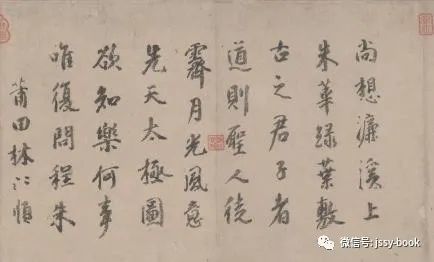 尚想濂溪上
朱華緑葉敷
古之君子者
道則聖人徒
霽月光風意
先天太極圖
欲知樂何事
唯復問程朱
莆田林以順
微信号: jssy-book